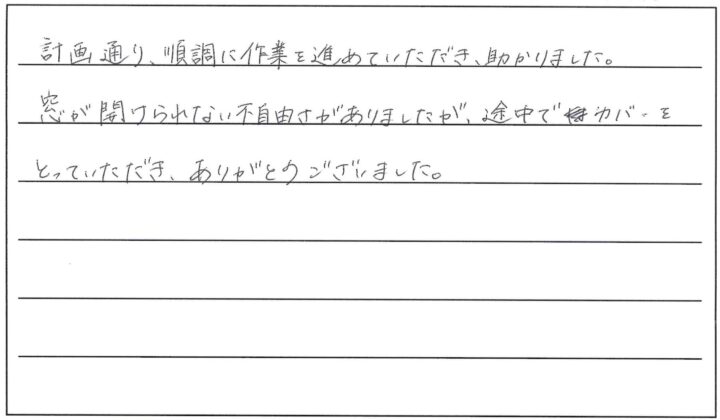 計画通り、順調に作業を進めていただき、助かりました。
窓が開けられない不自由さがありましたが、途中でカバーを
とっていただき、ありがとうございました。